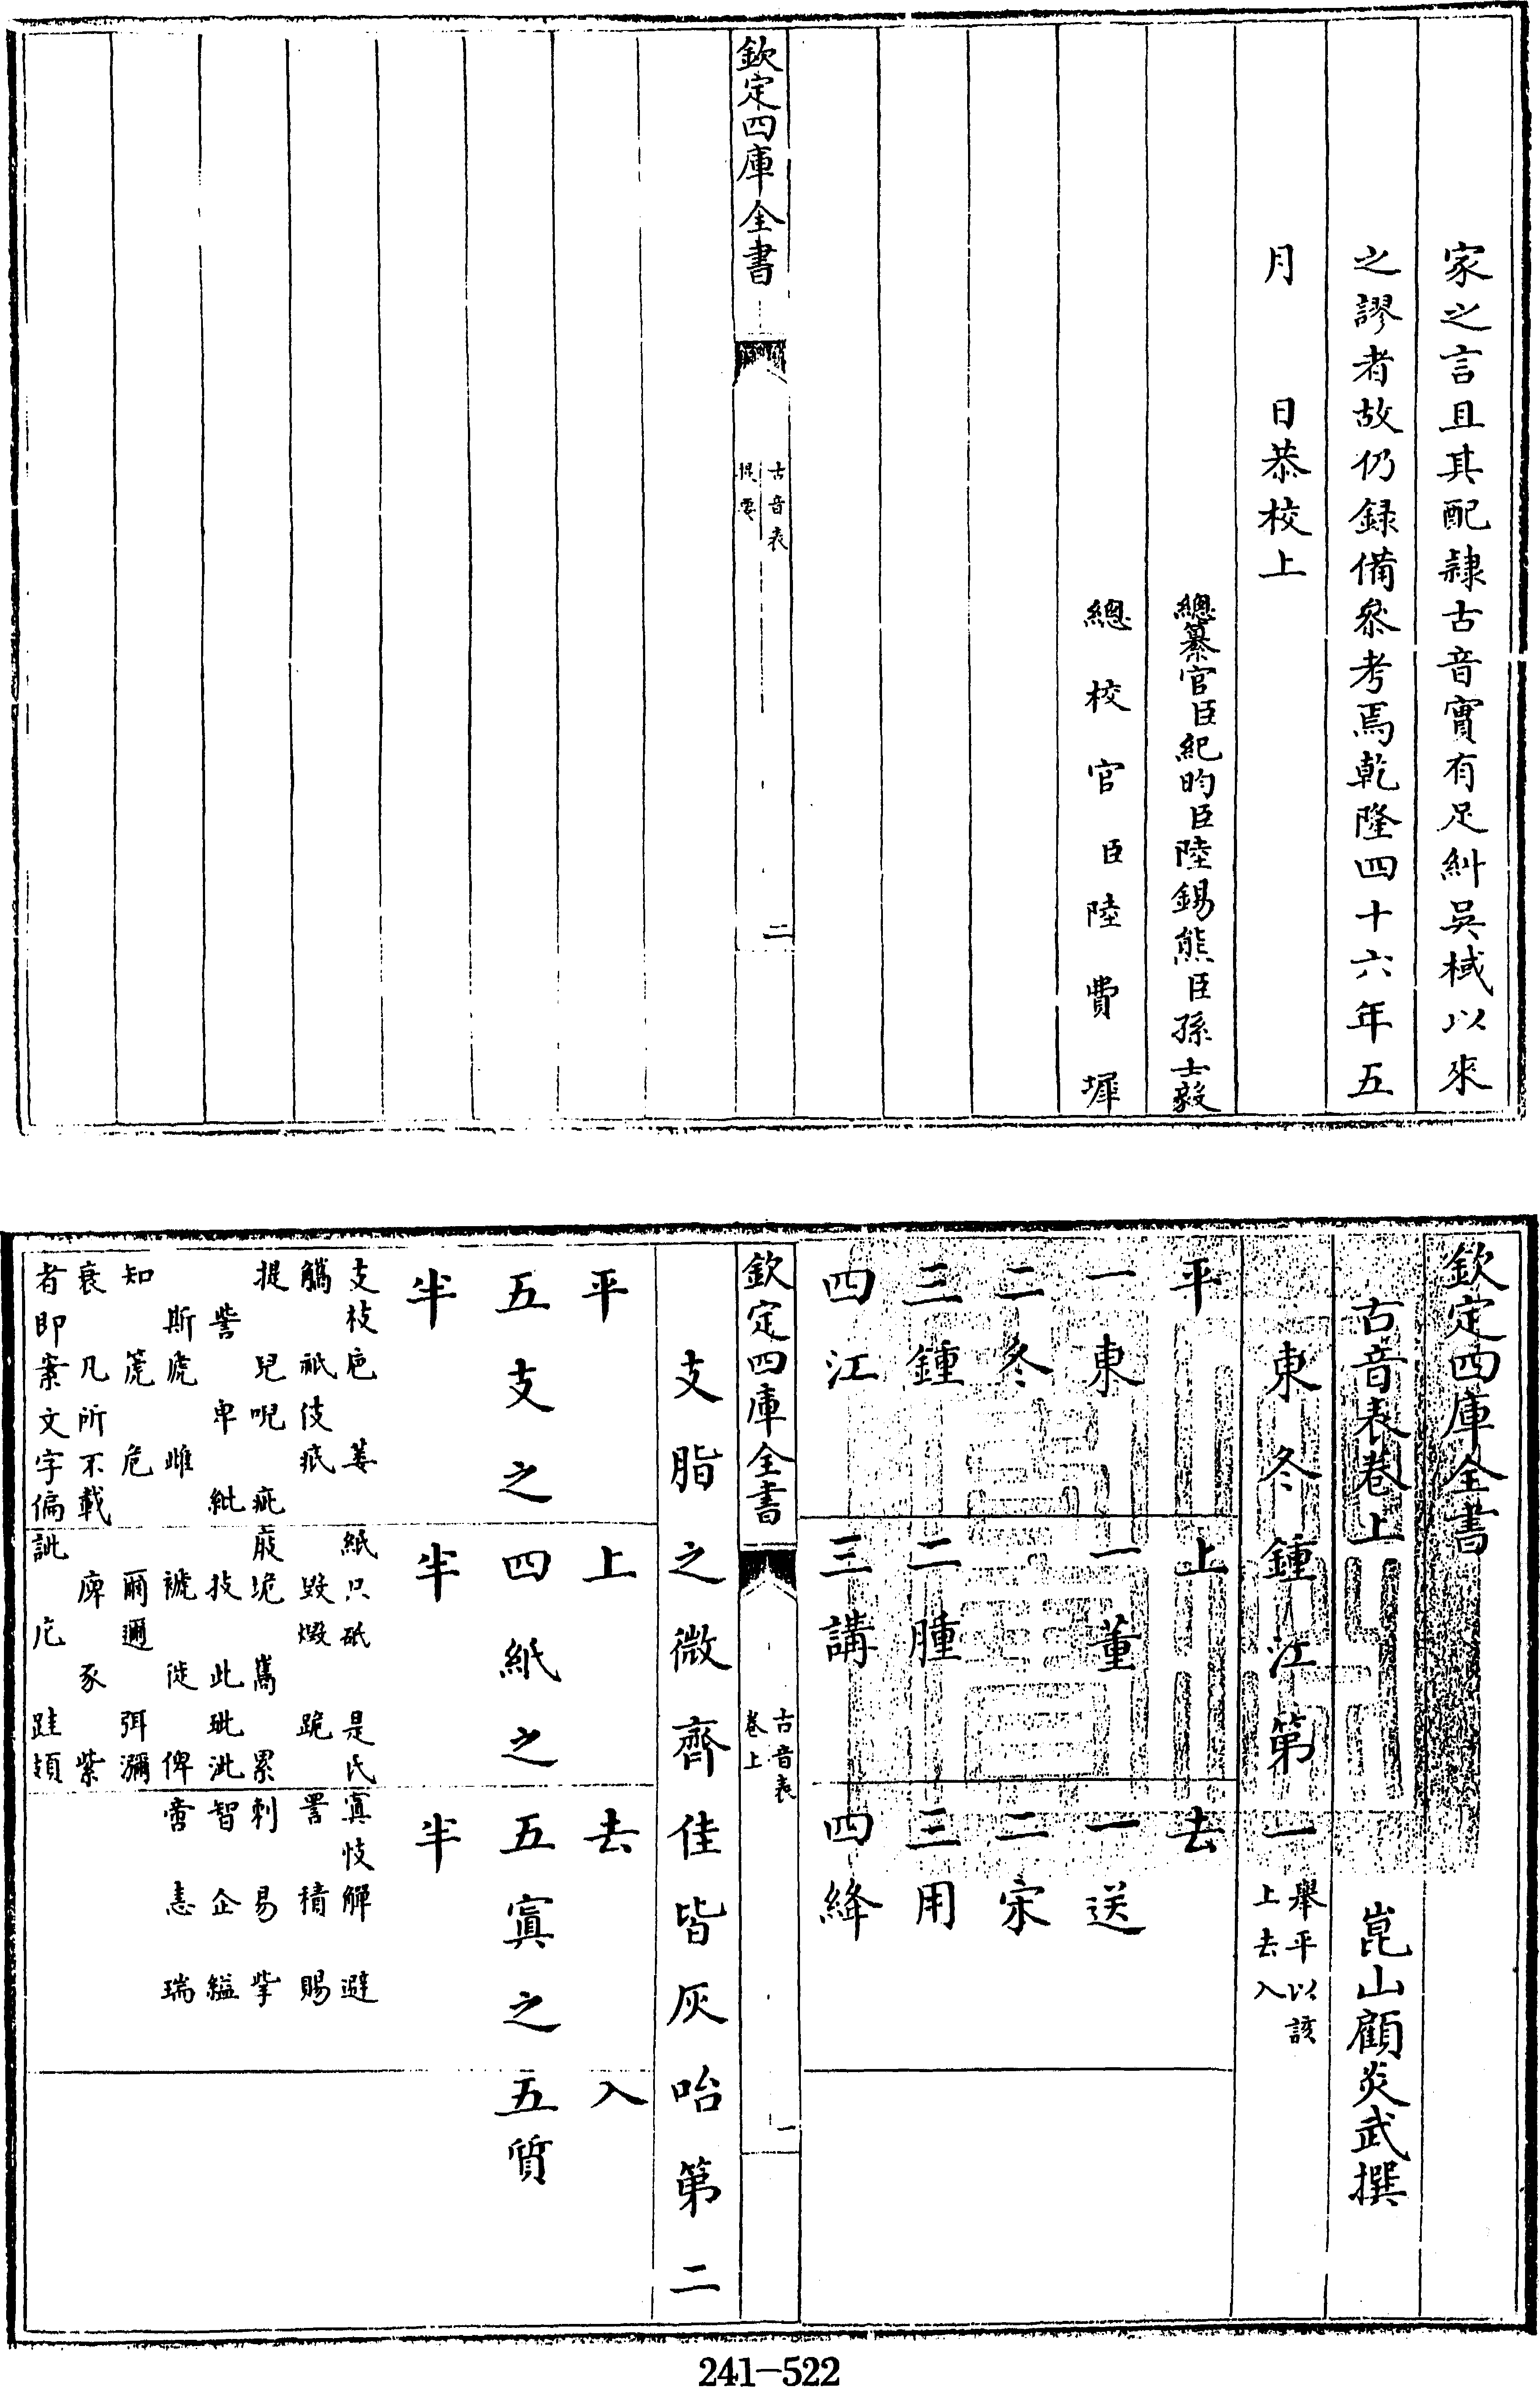 家之言且其配隸古音實有足糾吳棫以來
之謬者故仍録備參考焉乾隆四十六年五
月 日恭校上
總纂官臣紀昀臣陸錫熊臣孫士毅
總校官臣陸費墀
欽定四庫全書
古音表
提要
二
欽定四庫全書
古音表卷上
崑山顧炎武撰
東冬鍾江第一
舉平以該
上去入
平
上
去
一東
一董
一送
二冬
二宋
三鍾
二腫
三用
四江
三講
四絳
欽定四庫全書
古音表
卷上
一
支脂之微齊佳皆灰咍第二
平
上
去
入
五支之
四紙之
五寘之
五質
半
半
半
支枝巵 䓺
觿 祇伎疧
提 兒唲 疵
訾 卑 紕
斯虒 雌
知 箎 危
衰 凡所不載
者即案文字偏
紙只砥 是氏
毀燬 跪
庪垝 嶲 累
技 此玼泚
褫 徙 俾
爾邇 弭瀰
庳 豕 紫
訿 庀 跬頍
寘忮觶 避
詈 積 賜
刺 易 㧘
智 企 縊
啻 恚 瑞
241-522